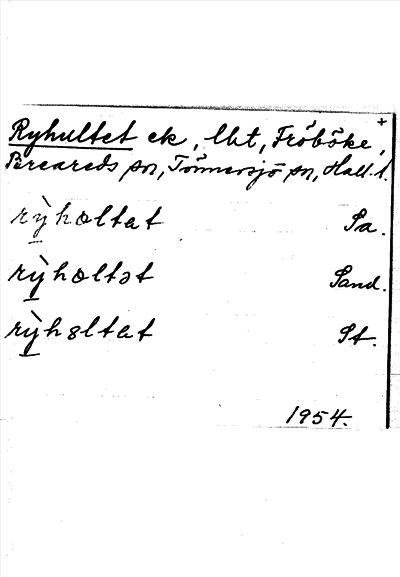 +
Ryhultet ek, lht, Fröböke,
Breareds sn, Tönnersjö sn, Hall. l.
rỳhœltat Sa.
rỳhœltət Sand.
rỳhɵltat St.
1954.